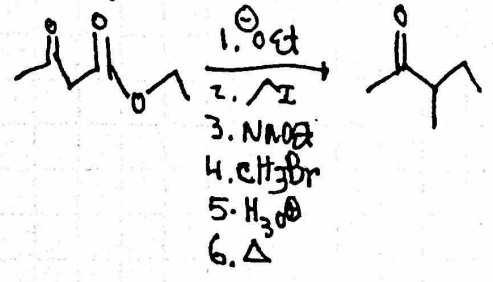 O O O
1. ⊖OEt
O
2. I
3. NaOEt
4. CH3Br
5. H3O⊕
6. Δ